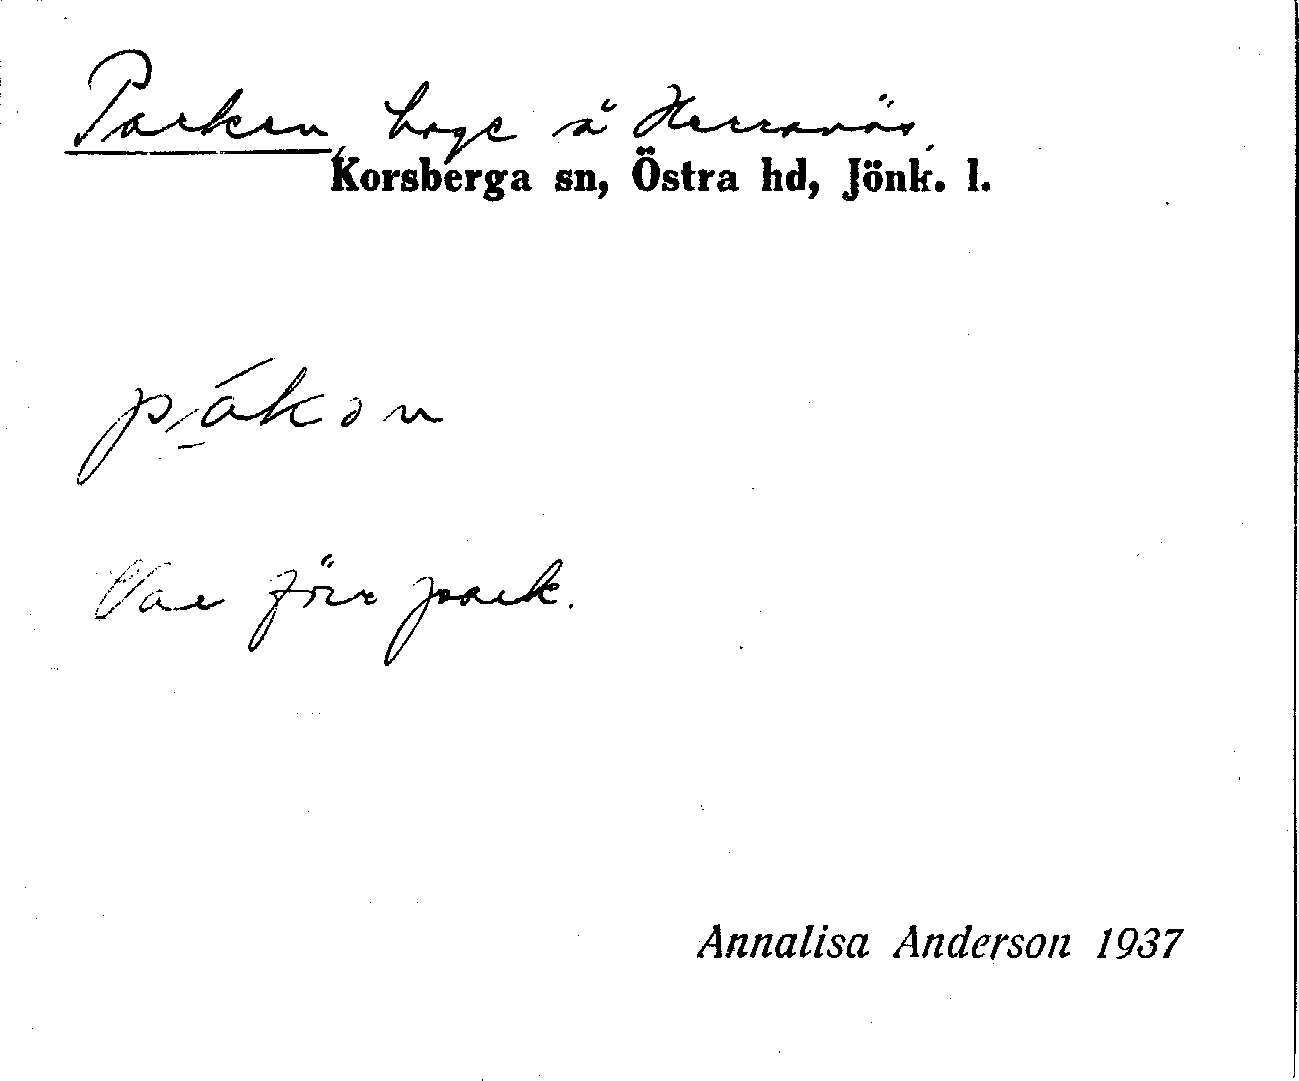 Parken, hage å Herranäs,
Korsberga sn, Östra hd, Jönk. l.
pákon
Var förr park.
Annalisa Anderson 1937